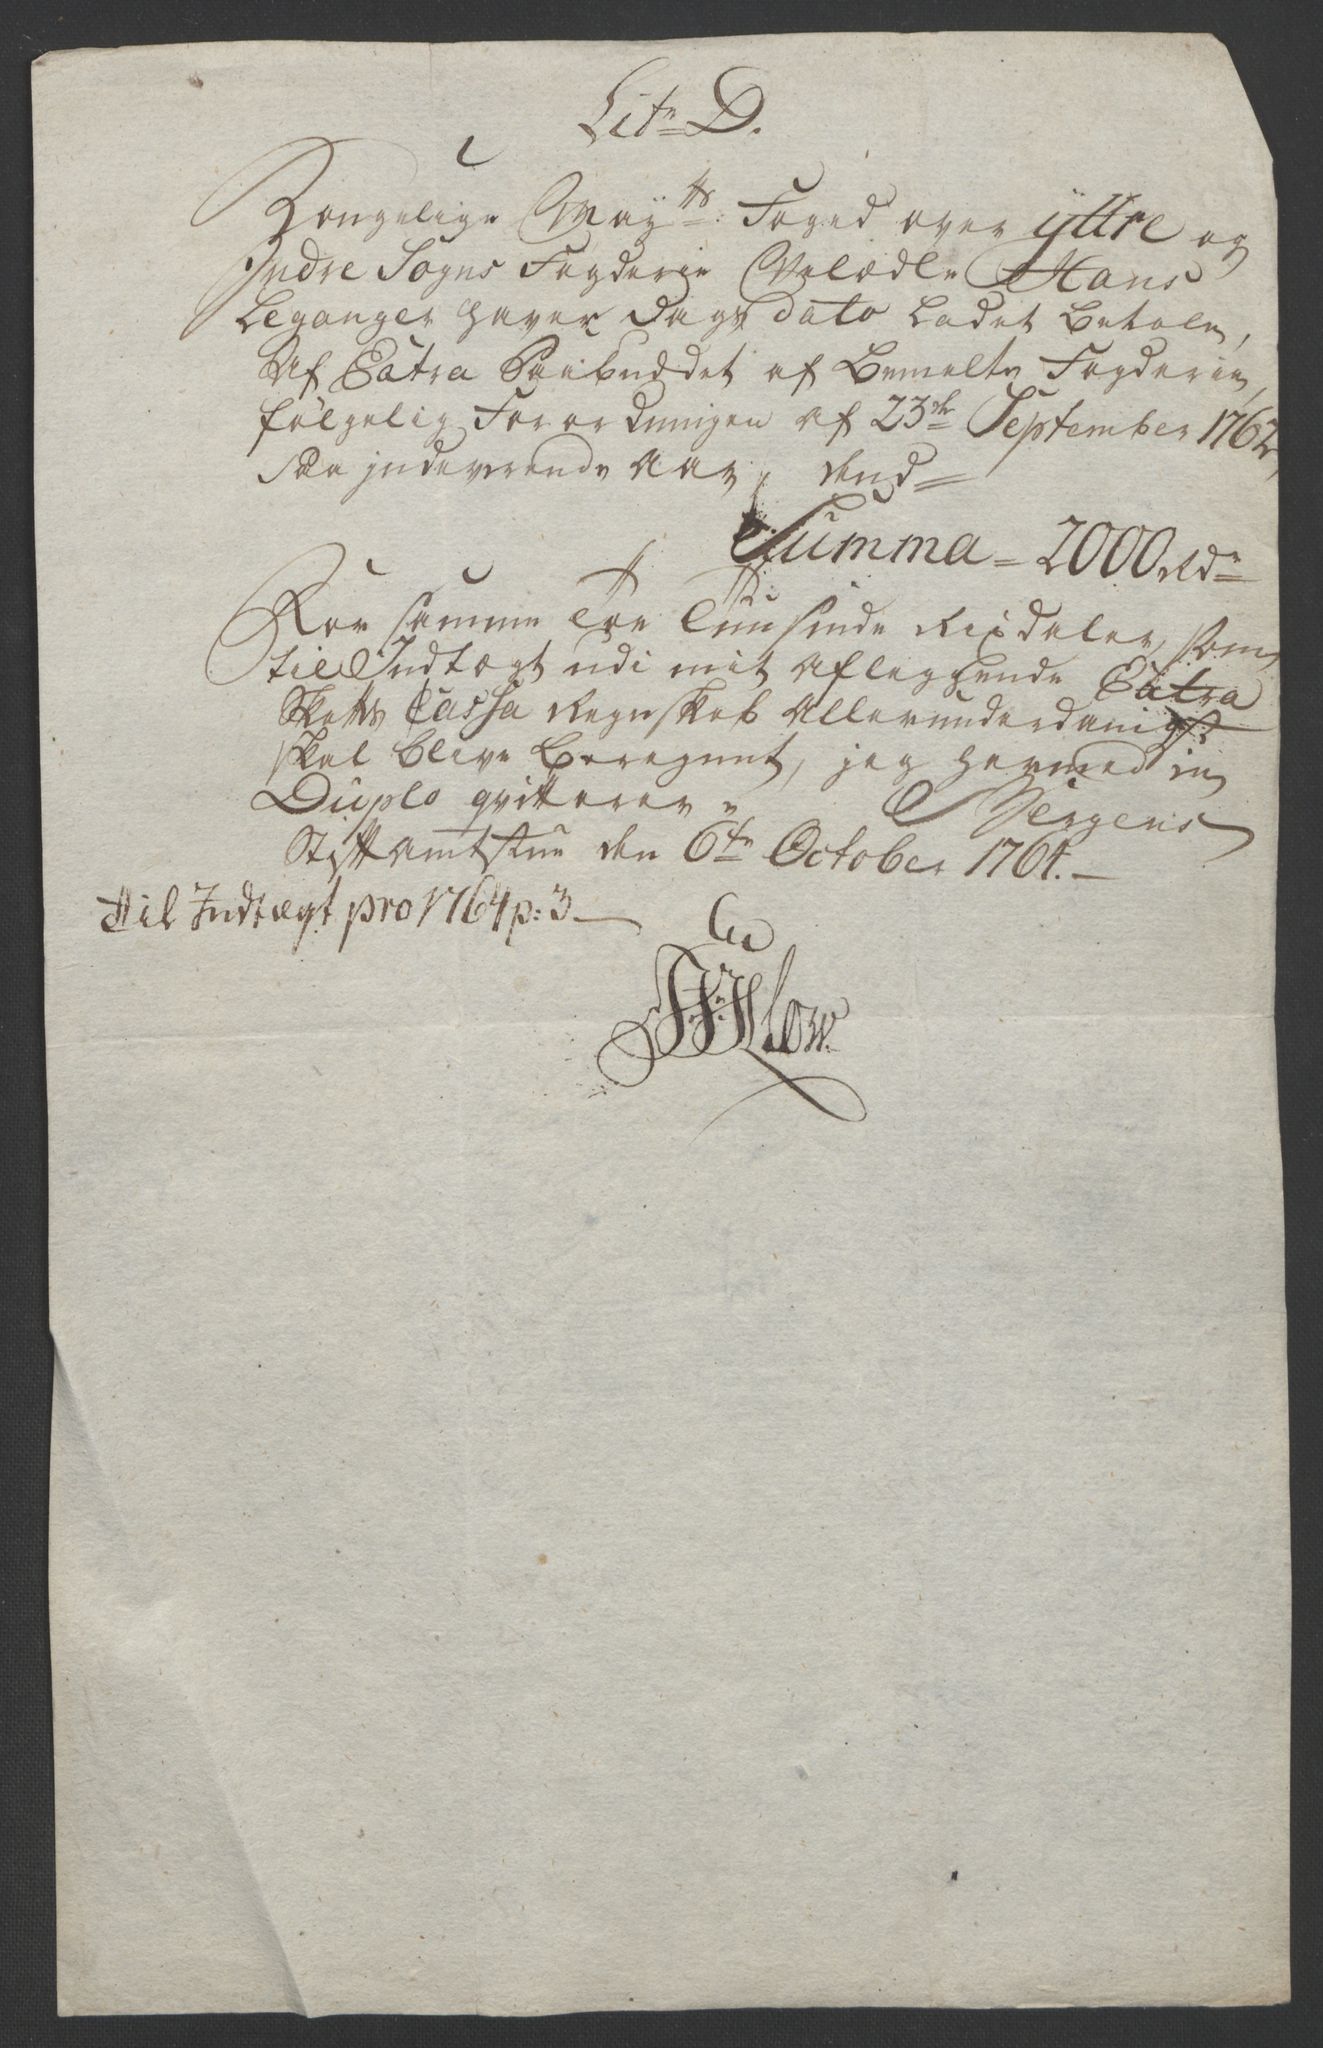 Litr D.
Kongelige Mayts: Foged over Ÿttre og
Indre Sogns Fogderie Velædle Hans
Leganger haver Dags dato Ladet Betale,
Af Extra Paabuddet af Bemelte Fogderie,
følgelig Forordningen af 23de September 1762,
for indeverende Aar, dend
Summa = 2000 Rdr
For samme Toe Tuusinde Rixdaler, som
til Indtægt udi mit aflegghende Extra
Skatts Cassa Regnskab Allerunderdanigst
skal blive Beregnet, jeg hermed in
Duplo qvitterer. Bergens
Stiftamtstue den 6te October 1764.
Til Indtægt pro 1764 p: 3